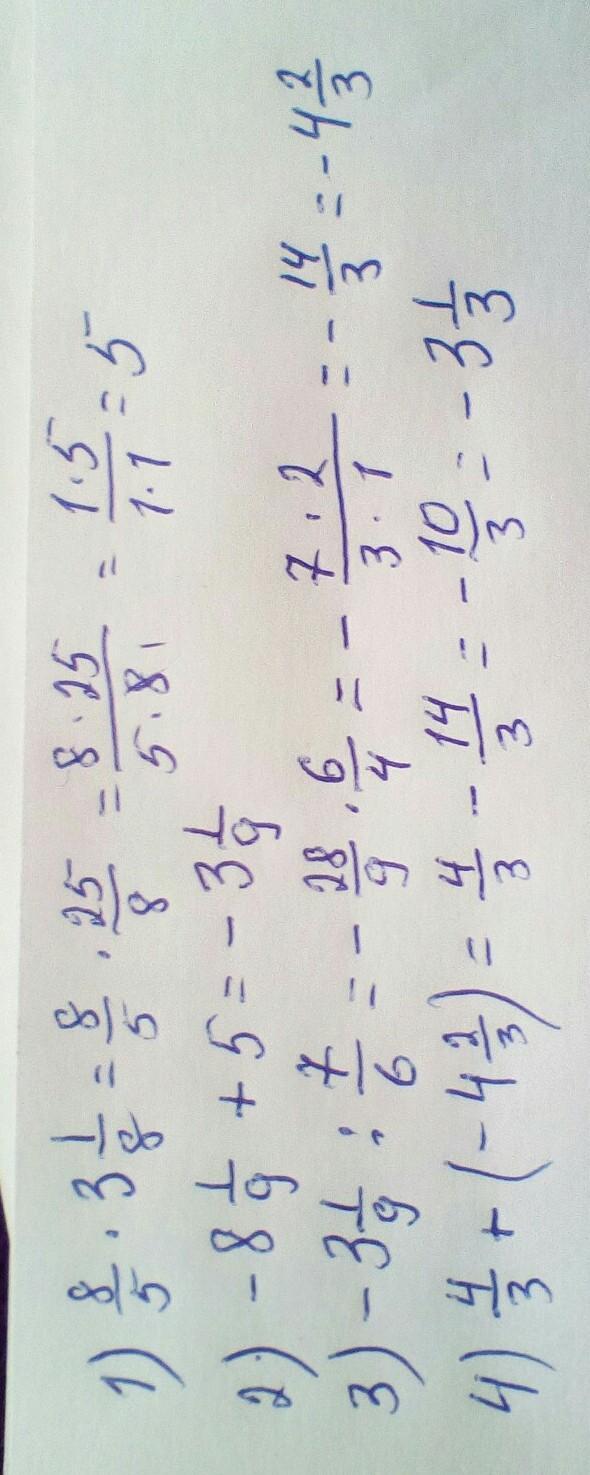 1) 8/5 · 3 1/8 = 8/5 · 25/8 = 8·25/5·8 = 1·5/1·1 = 5
2) - 8 1/9 + 5 = - 3 1/9
3) - 3 1/9 : 7/6 = - 28/9 · 6/4 = - 7·2/3·1 = - 14/3 = - 4 2/3
4) 4/3 + (- 4 2/3) = 4/3 - 14/3 = - 10/3 = - 3 1/3